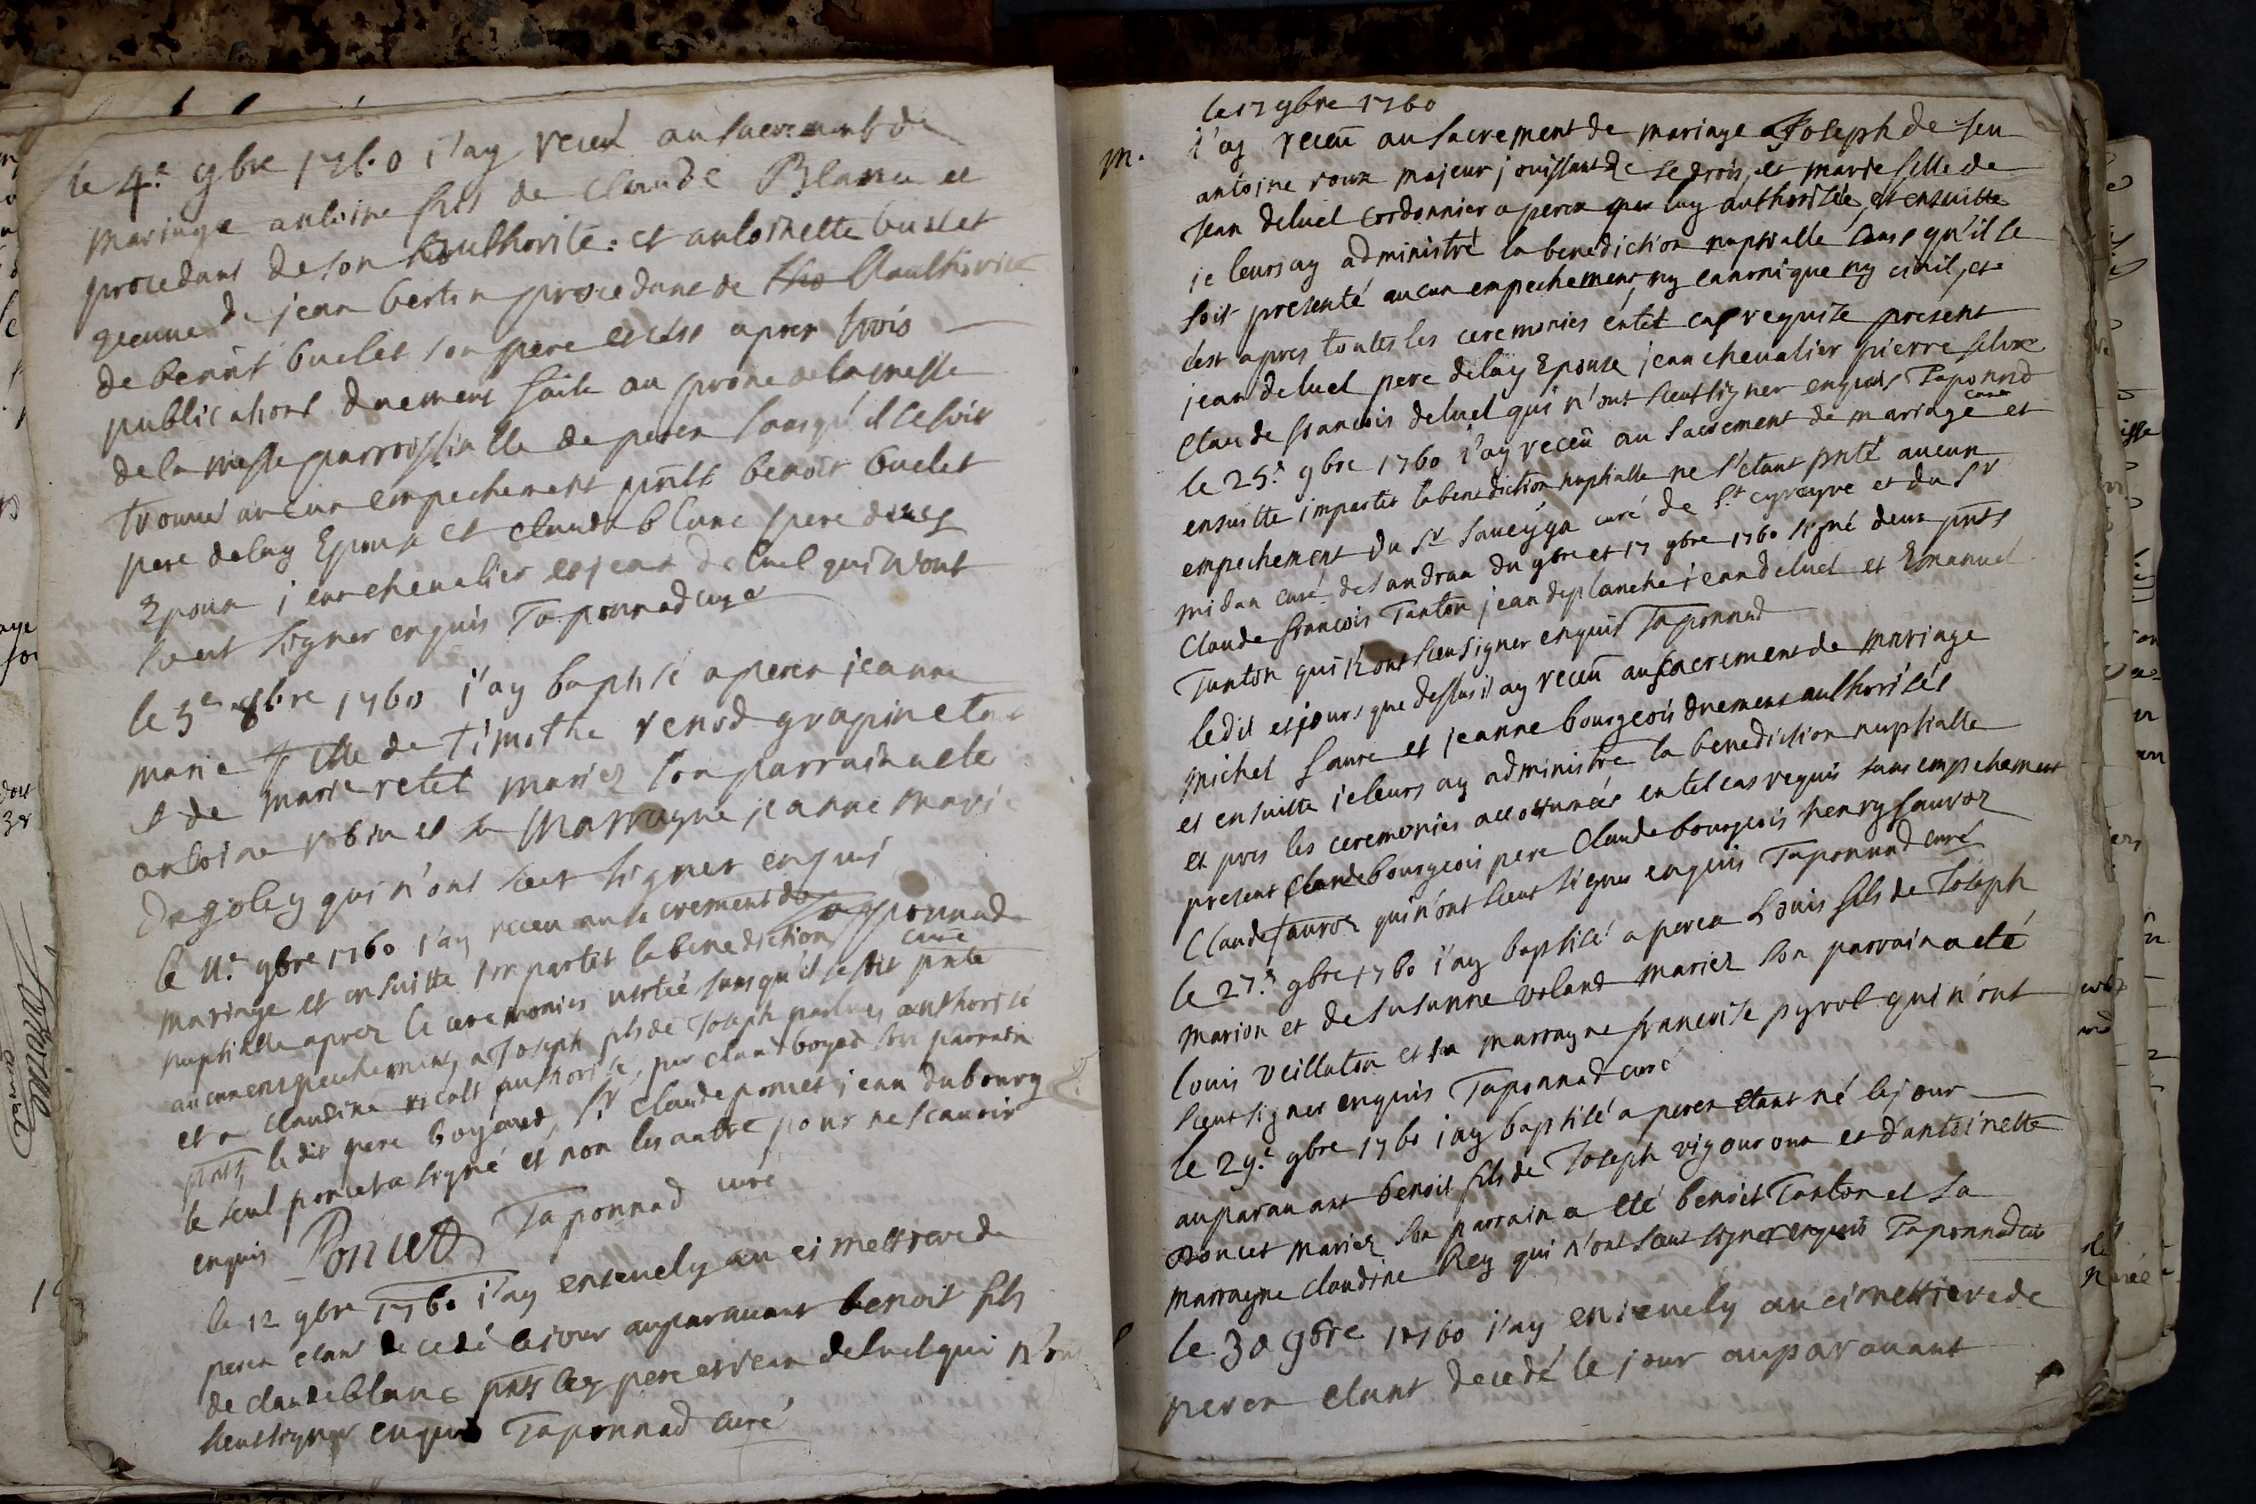 le 4.e 9bre 1760 j'ay receu au sacrement de
mariage antoine fils de claude Blanc et
procedant de son authorité : et antoinette buclet
veuve de jean bertin procedant de l'authorité
de benoit buclet son pere et ce apres trois
publications duement faite au prone de la messe
de la messe parroissialle de perex sans qu'il se soit
trouvé aucun empechement pnts benoit buclet
pere de lay Epouse et claude blanc pere
Epoux jean chevalier et jean deluel qui n'ont
sceut signer enquis Taponnad curé
le 5e 8bre 1760 j'ay baptisé a perex jeanne
marie fille de timothe renod grapinet
et de marie retet mariez son parrain a ete
antoine robin et sa marrayne jeanne marie
degoley qui n'ont sceut signer enquis
Taponnad
curé
le 11.e 9bre 1760 j'ay receu au sacrement de
mariage et ensuitte impartit la benediction
nuptialle aprez le ceremonies usitée sans qu'il se soit pnté
aucun empechement a Joseph fils de Joseph authorisé
et a Claudine authorisé, par claud boyad son parrain
pnts ledit pere boyaud, Sr Claude poncet jean dubourg
le seul poncet a signé et non les autre pour ne scauoir
enquis Poncet Taponnad curé
le 12 9bre 1760 j'ay enseuely au cimettiere de
perex etant decedé le jour auparauant benoit fils
de claude blanc pnts pere et jean deluel qui n'ont
sceut signer enquis Taponnad curé
le 17 9bre 1760
m. j'ay receu au sacrement de mariage Joseph de feu
antoine roux majeur jouissant de se drois, et marie fille de
jean deluel cordonnier a perex par luy authorisée, et ensuitte
je leurs ay administré la benediction nuptialle sans qu'il se
soit presenté aucun empechement ny canonique ny ciuil, et
c'est apres toutes les ceremonies en tel cas requise present
jean deluel pere de lay Epouse jean chevalier pierre
claude francois deluel qui n'ont sceut signer enquis Taponnad
curé
le 25.e 9bre 1760 j'ay receu au sacrement de mariage et
ensuitte impartit la benediction nuptialle ne s'etant pnté aucun
empechement du Sr curé de St cyr et du Sr
midan curé de sandran du 9bre et 17 9bre 1760 signé deux pnts
Claude francois Tanton jean deplanche jean deluel et Emanuel
Tanton qui n'ont sceu signer enquis Taponnad
ledit et jours que dessus j'ay receu au sacrement de mariage
michel faure et jeanne bourgeois duement authorisés
et ensuitte je leurs ay administré la benediction nuptialle
et pres les ceremonies accotumées en tel cas requis sans empechement
present Claude bourgeois pere Claude bourgeois henry fauroz
Claude fauroz qui n'ont sceut signer enquis Taponnad curé
le 27.e 9bre 1760 j'ay baptisé a perex Louis fils de Joseph
marion et de susanne voland mariez son parrain a eté
louis veillaton et sa marrayne francoise pyrot qui n'ont
sceut signer enquis Taponnad curé
le 29.e 9bre 1760 j'ay baptisé a perex etant né le jour
auparauant benoit fils de Joseph vigouroux et d'antoinette
poncet mariez son parrain a eté benoit Tanton et sa
marrayne claudine Rey qui n'ont sceut signer enquis Taponnad cu
le 30 9bre 1760 j'ay enseuely au cimettiere de
perex etant decedé le jour auparauant